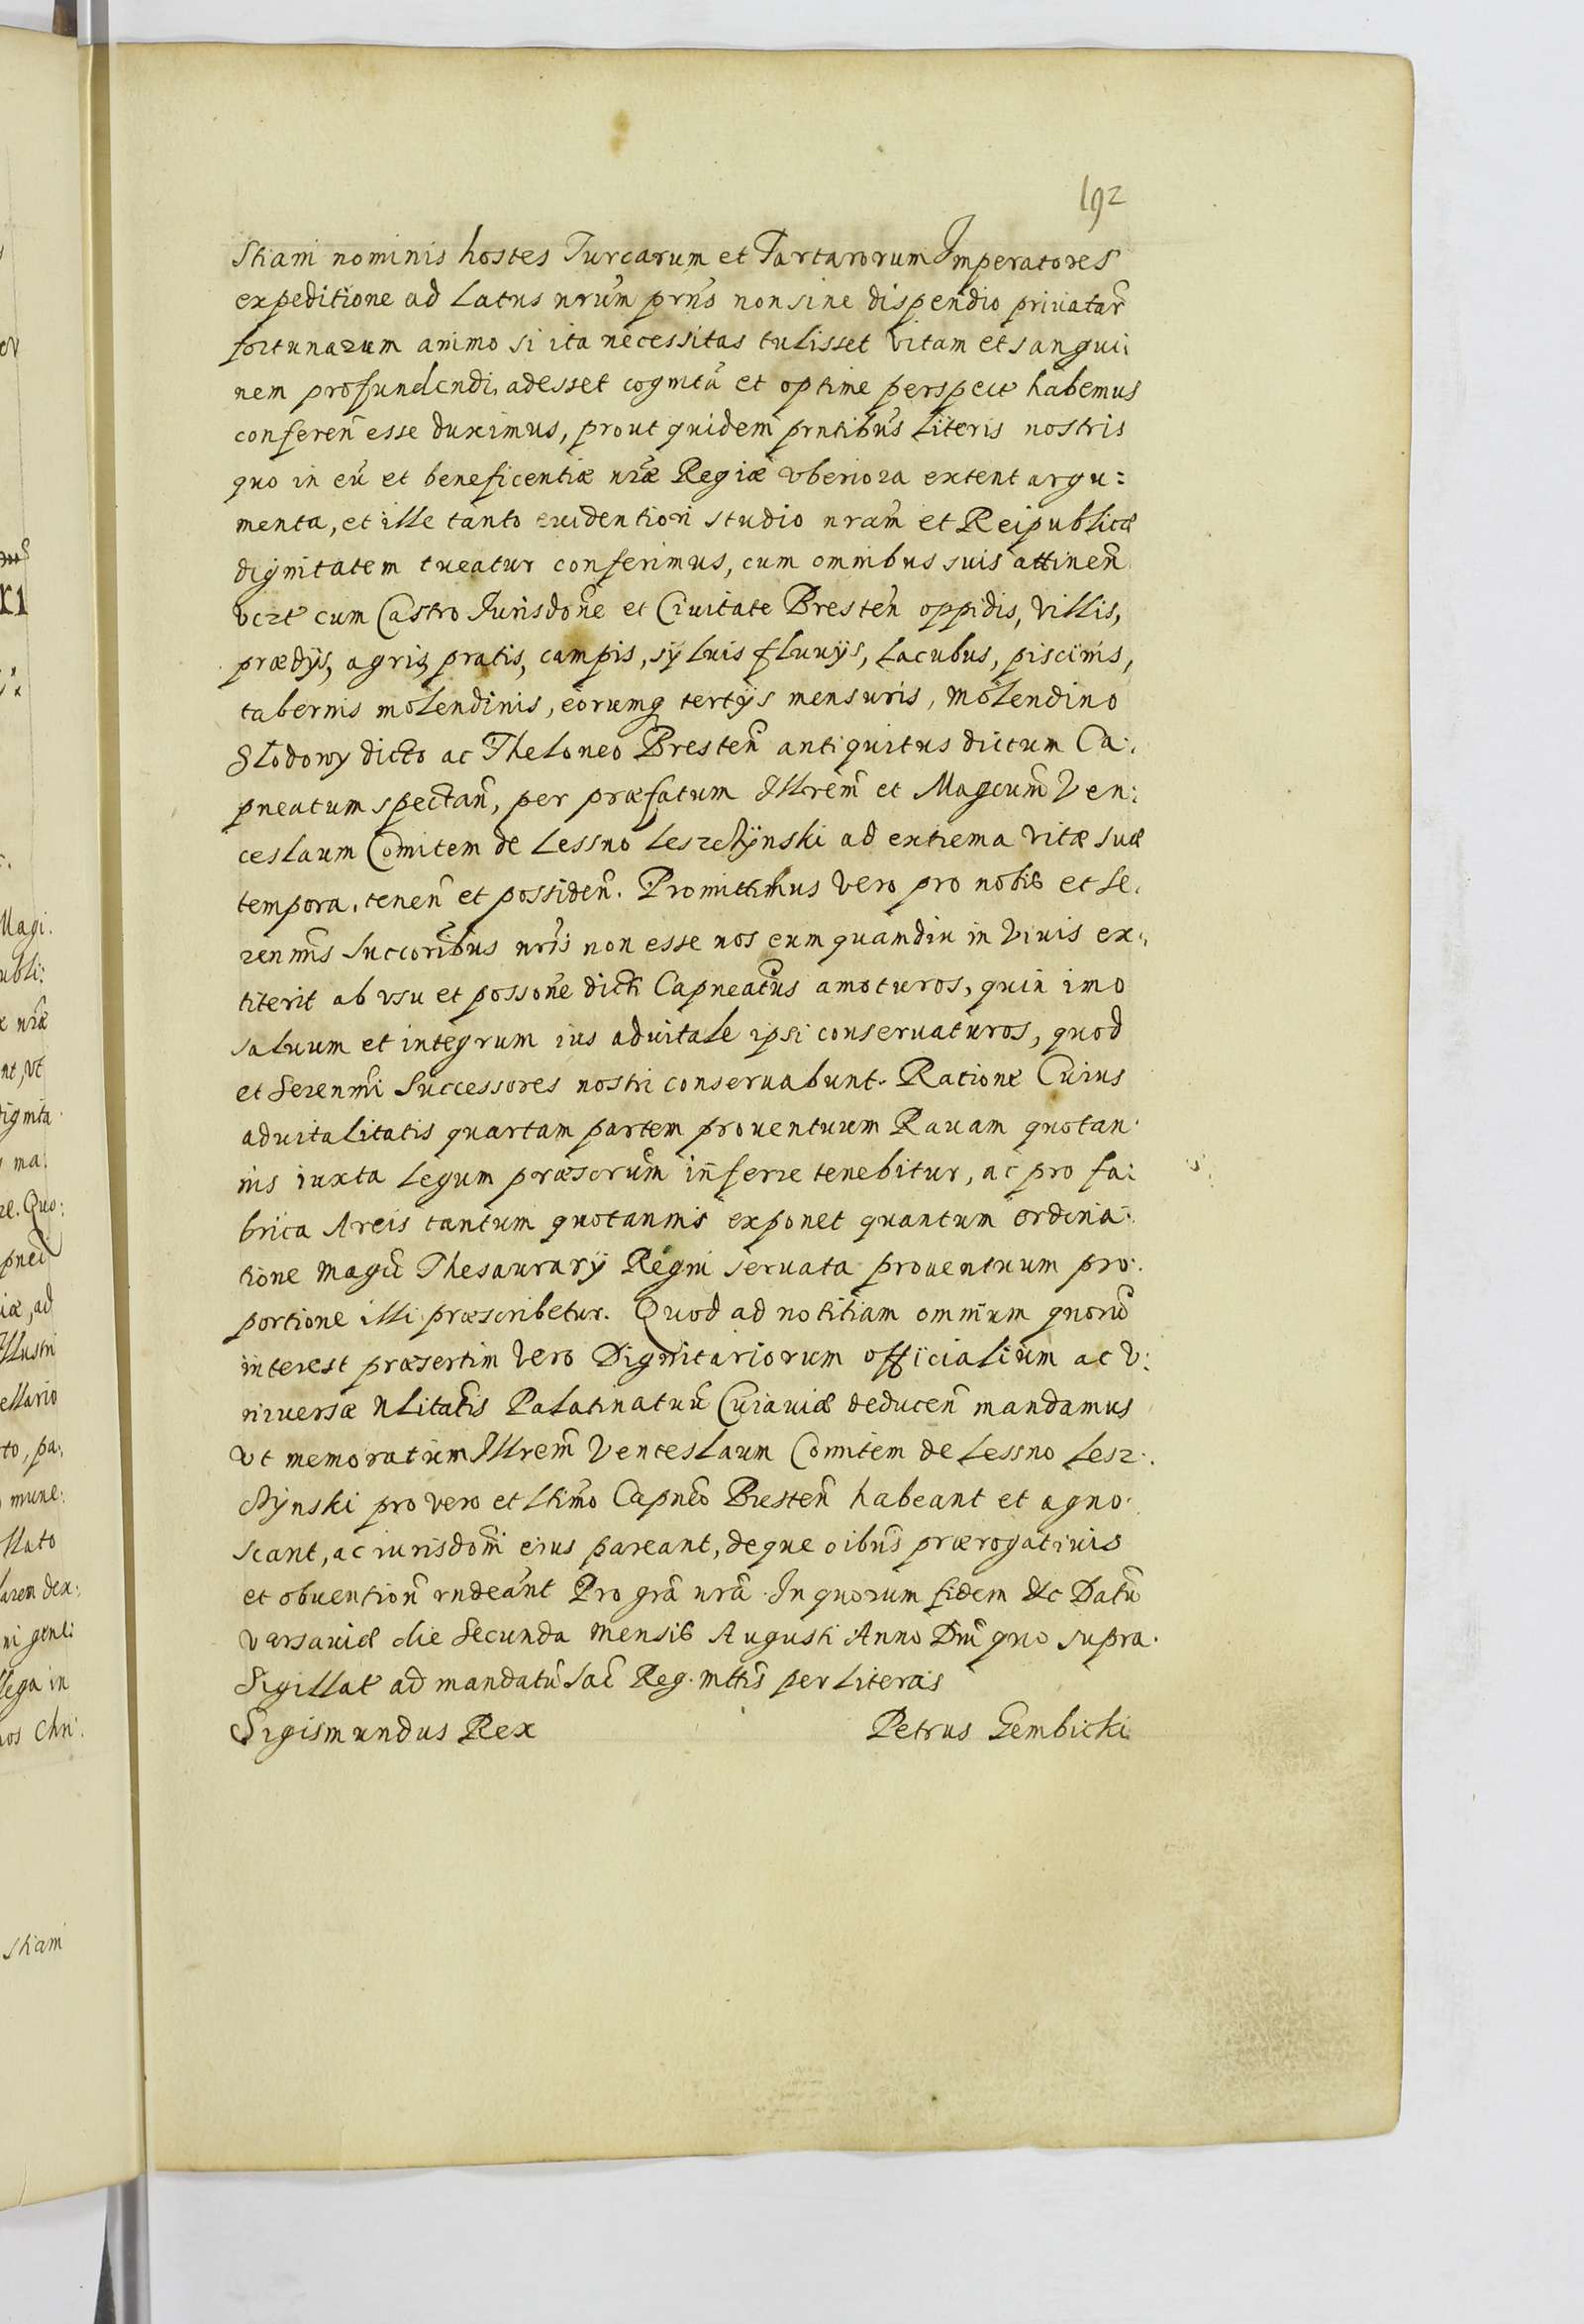 192
stiani nominis hostes Turcarum et Tartarorum Imperatores
expeditione ad latus nrũm prñs non sine dispendio priuatar̃
fortunarum animo si ita necessitas tulisset vitam et sangui:
nem profundendi, adesset cognitũ et optime perspect habemus
conferen̄ esse duximus, prout quidem prñtibus literis nostris
quo in eũ et beneficentiæ nrãe Regiæ vberiora extent argu:
menta, et ille tanto euidentiori studio nram̃ et Reipublicæ
dignitatem tueatur conferimus, cum omnibus suis attinen̄
vczt cum Castro Jurisdoñe et Ciuitate Bresteñ oppidis, villis,
prædijs, agris, pratis, campis, syluis fluuijs, lacubus, piscinis,
tabernis molendinis, eorumq tertijs mensuris, molendino
Slodowy dicto ac Theloneo Bresteñ antiquitus dictum Ca:
pneatum spectañ, per præfatum Illrem̃ et Magcum̃ Ven:
ceslaum Comitem de Lessno Leszchÿnski ad extrema vitæ suæ
tempora, teneñ et possideñ. Promittimus vero pro nobis et Se:
renmis̃ succoribũs nrĩs non esse nos eum quamdiu in viuis ex:
titerit ab vsu et possoñe dicti Capneatũs amoturos, quin imo
saluum et integrum ius aduitale ipsi conseruaturos, quod
et Serenmĩ Successores nostri conseruabunt. Ratione Cuius
aduitalitatis quartam partem prouentuum Rauam quotan:
nis iuxta legum præscrum̃ inferre tenebitur, ac pro fa:
brica Arcis tantum quotannis exponet quantum ordina:
tione Magcĩ Thesaurarij Regni seruata prouentuum pro:
portione illi præscribetur. Quod ad notitiam omnium quorũ
interest præsertim vero Dignitariorum officialium ac v:
niuersæ Nlitatĩs Palatinatuũ Cuiauiæ deduceñ mandamus
vt memoratum Illrem̃ Venceslaum Comitem de Lessno Lesz:
chÿnski pro vero et ltimõ Capneõ Bresteñ habeant et agno:
scant, ac iurisdoñi eius pareant, deque oibũs prærogatiuis
et obuentioñ rndeãnt Pro grã nrã. In quorum fidem &c Datũ
Varsauiæ die Secunda Mensis Augusti Anno Dnĩ quo supra.
Sigillat ad mandatũ Sac̃ Reg. Mttis̃ per literas
Sigismundus Rex Petrus Gembicki